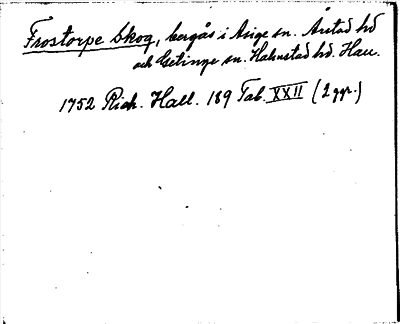 Frostorpe Skog, bergås i Asige sn. Årstad hd
och Getinge sn. Halmstad hd. Hall.
1752 Rich. Hall. 189 Tab. XXII (2 ggr.)